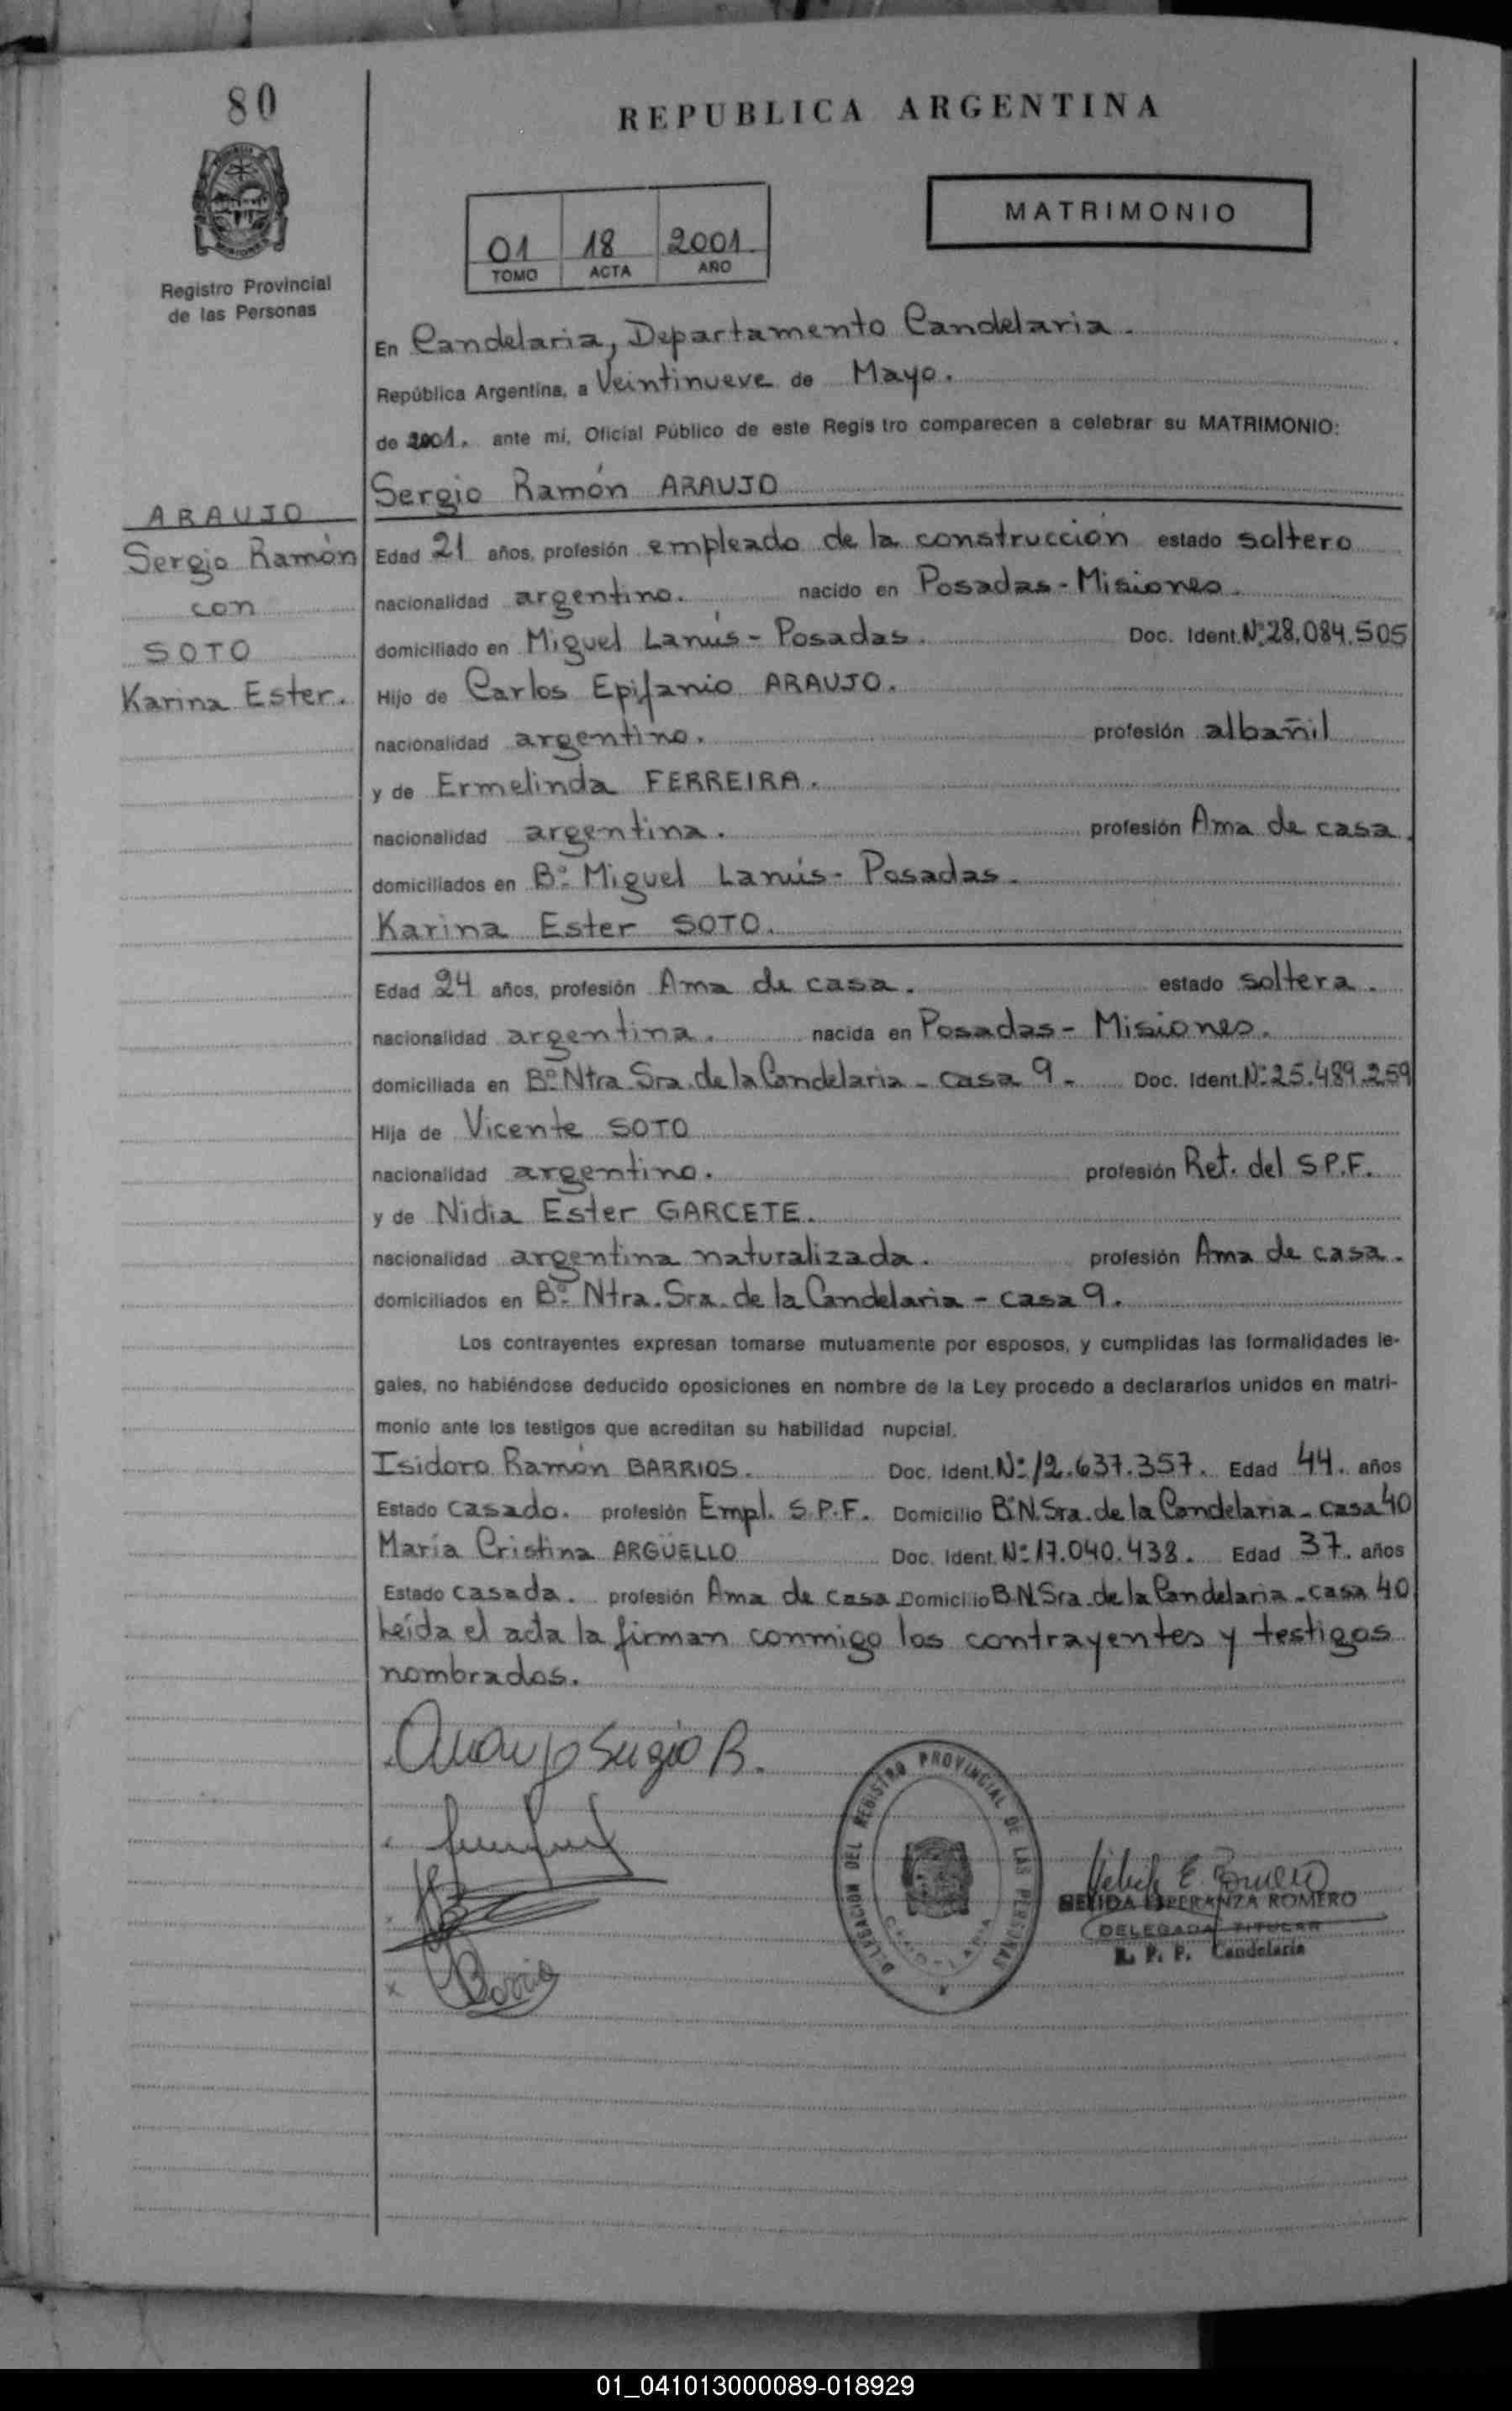 80
REPUBLICA ARGENTINA
MATRIMONIO
01 18 2001
TOMO ACTA AÑO
Registro Provincial
de las Personas
En Candelaria, Departamento Candelaria.
República Argentina, a Veintinueve de Mayo.
de 2001. ante mí, Oficial Público de este Regis tro comparecen a celebrar su MATRIMONIO:
Sergio Ramón ARAUJO
ARAUJO
Sergio Ramón
con
SOTO
Karina Ester.
Edad 21 años, profesión empleado de la construcción estado soltero
nacionalidad argentino. nacido en Posadas - Misiones.
domiciliado en Miguel Lanús - Posadas. Doc. Ident. Nº 28.084.505
Hijo de Carlos Epifanio ARAUJO.
nacionalidad argentino. profesión albañil
y de Ermelinda FERREIRA.
nacionalidad argentina. profesión Ama de casa.
domiciliados en Bº Miguel Lanús - Posadas.
Karina Ester SOTO.
Edad 24 años, profesión Ama de casa. estado soltera.
nacionalidad argentina. nacida en Posadas - Misiones.
domiciliada en Bº Ntra. Sra. de la Candelaria - casa 9. Doc. Ident. Nº 25.489.259
Hija de Vicente SOTO
nacionalidad argentino. profesión Ret. del S.P.F.
y de Nidia Ester GARCETE.
nacionalidad argentina naturalizada. profesión Ama de casa.
domiciliados en Bº Ntra. Sra. de la Candelaria - casa 9.
Los contrayentes expresan tomarse mutuamente por esposos, y cumplidas las formalidades le-
gales, no habiéndose deducido oposiciones en nombre de la Ley procedo a declararlos unidos en matri-
monio ante los testigos que acreditan su habilidad nupcial.
Isidoro Ramón BARRIOS. Doc. Ident. Nº 12.637.357. Edad 44. años
Estado casado. profesión Empl. S.P.F. Domicilio Bº N. Sra. de la Candelaria - casa 40
María Cristina ARGÜELLO Doc. Ident. Nº 17.040.438. Edad 37. años
Estado casada. profesión Ama de casa Domicilio B. N. Sra. de la Candelaria - casa 40
Leída el acta la firman conmigo los contrayentes y testigos
nombrados.
Araujo Sergio R.
DELEGACION DEL REGISTRO PROVINCIAL DE LAS PERSONAS
CANDELARIA
NELIDA ESPERANZA ROMERO
DELEGADA TITULAR
R. P. P. Candelaria
01_041013000089-018929